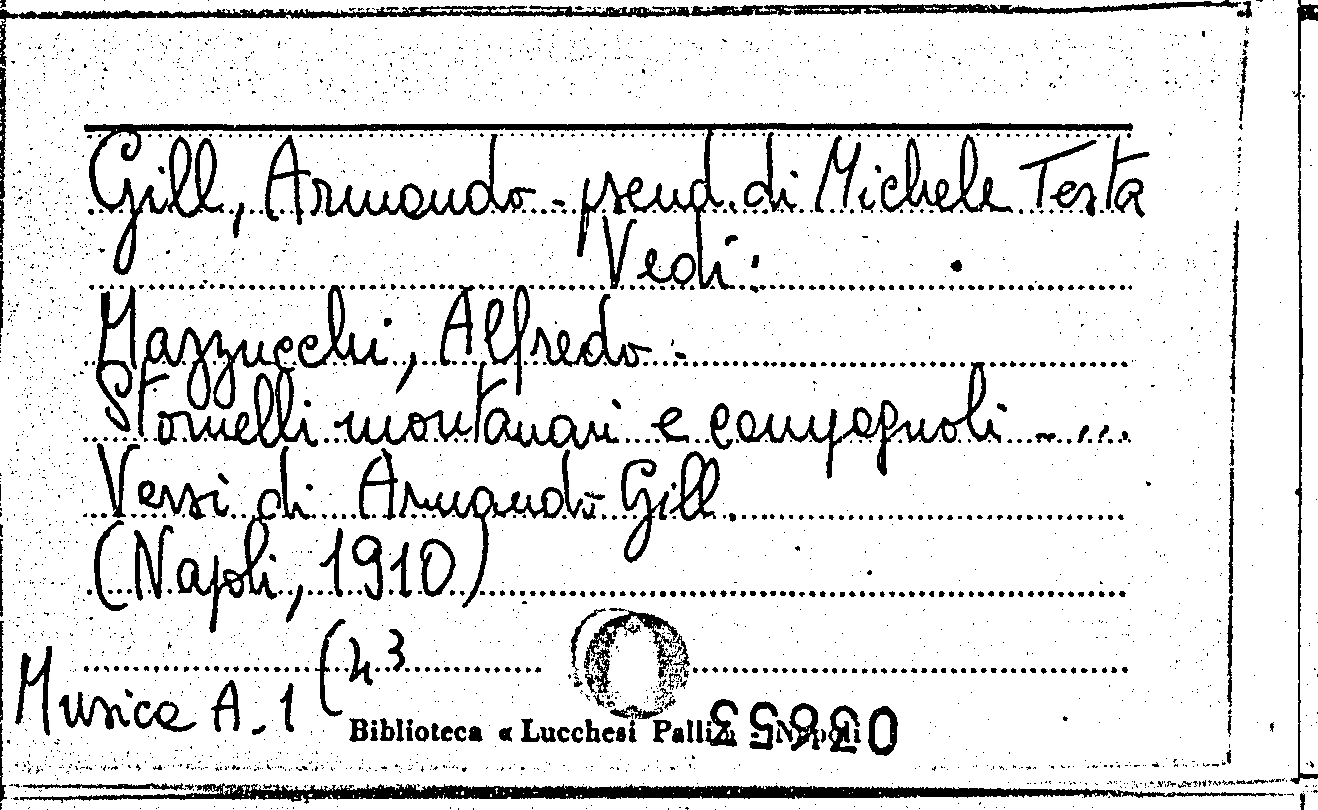 Gill, Armando - pseud. di Michele Testa
Vedi:
Mazzucchi, Alfredo -
Stornelli montanari e campagnoli - ...
Versi di Armando Gill.
(Napoli, 1910)
Musica A. 1 (43
Biblioteca « Lucchesi Palli» - Napoli